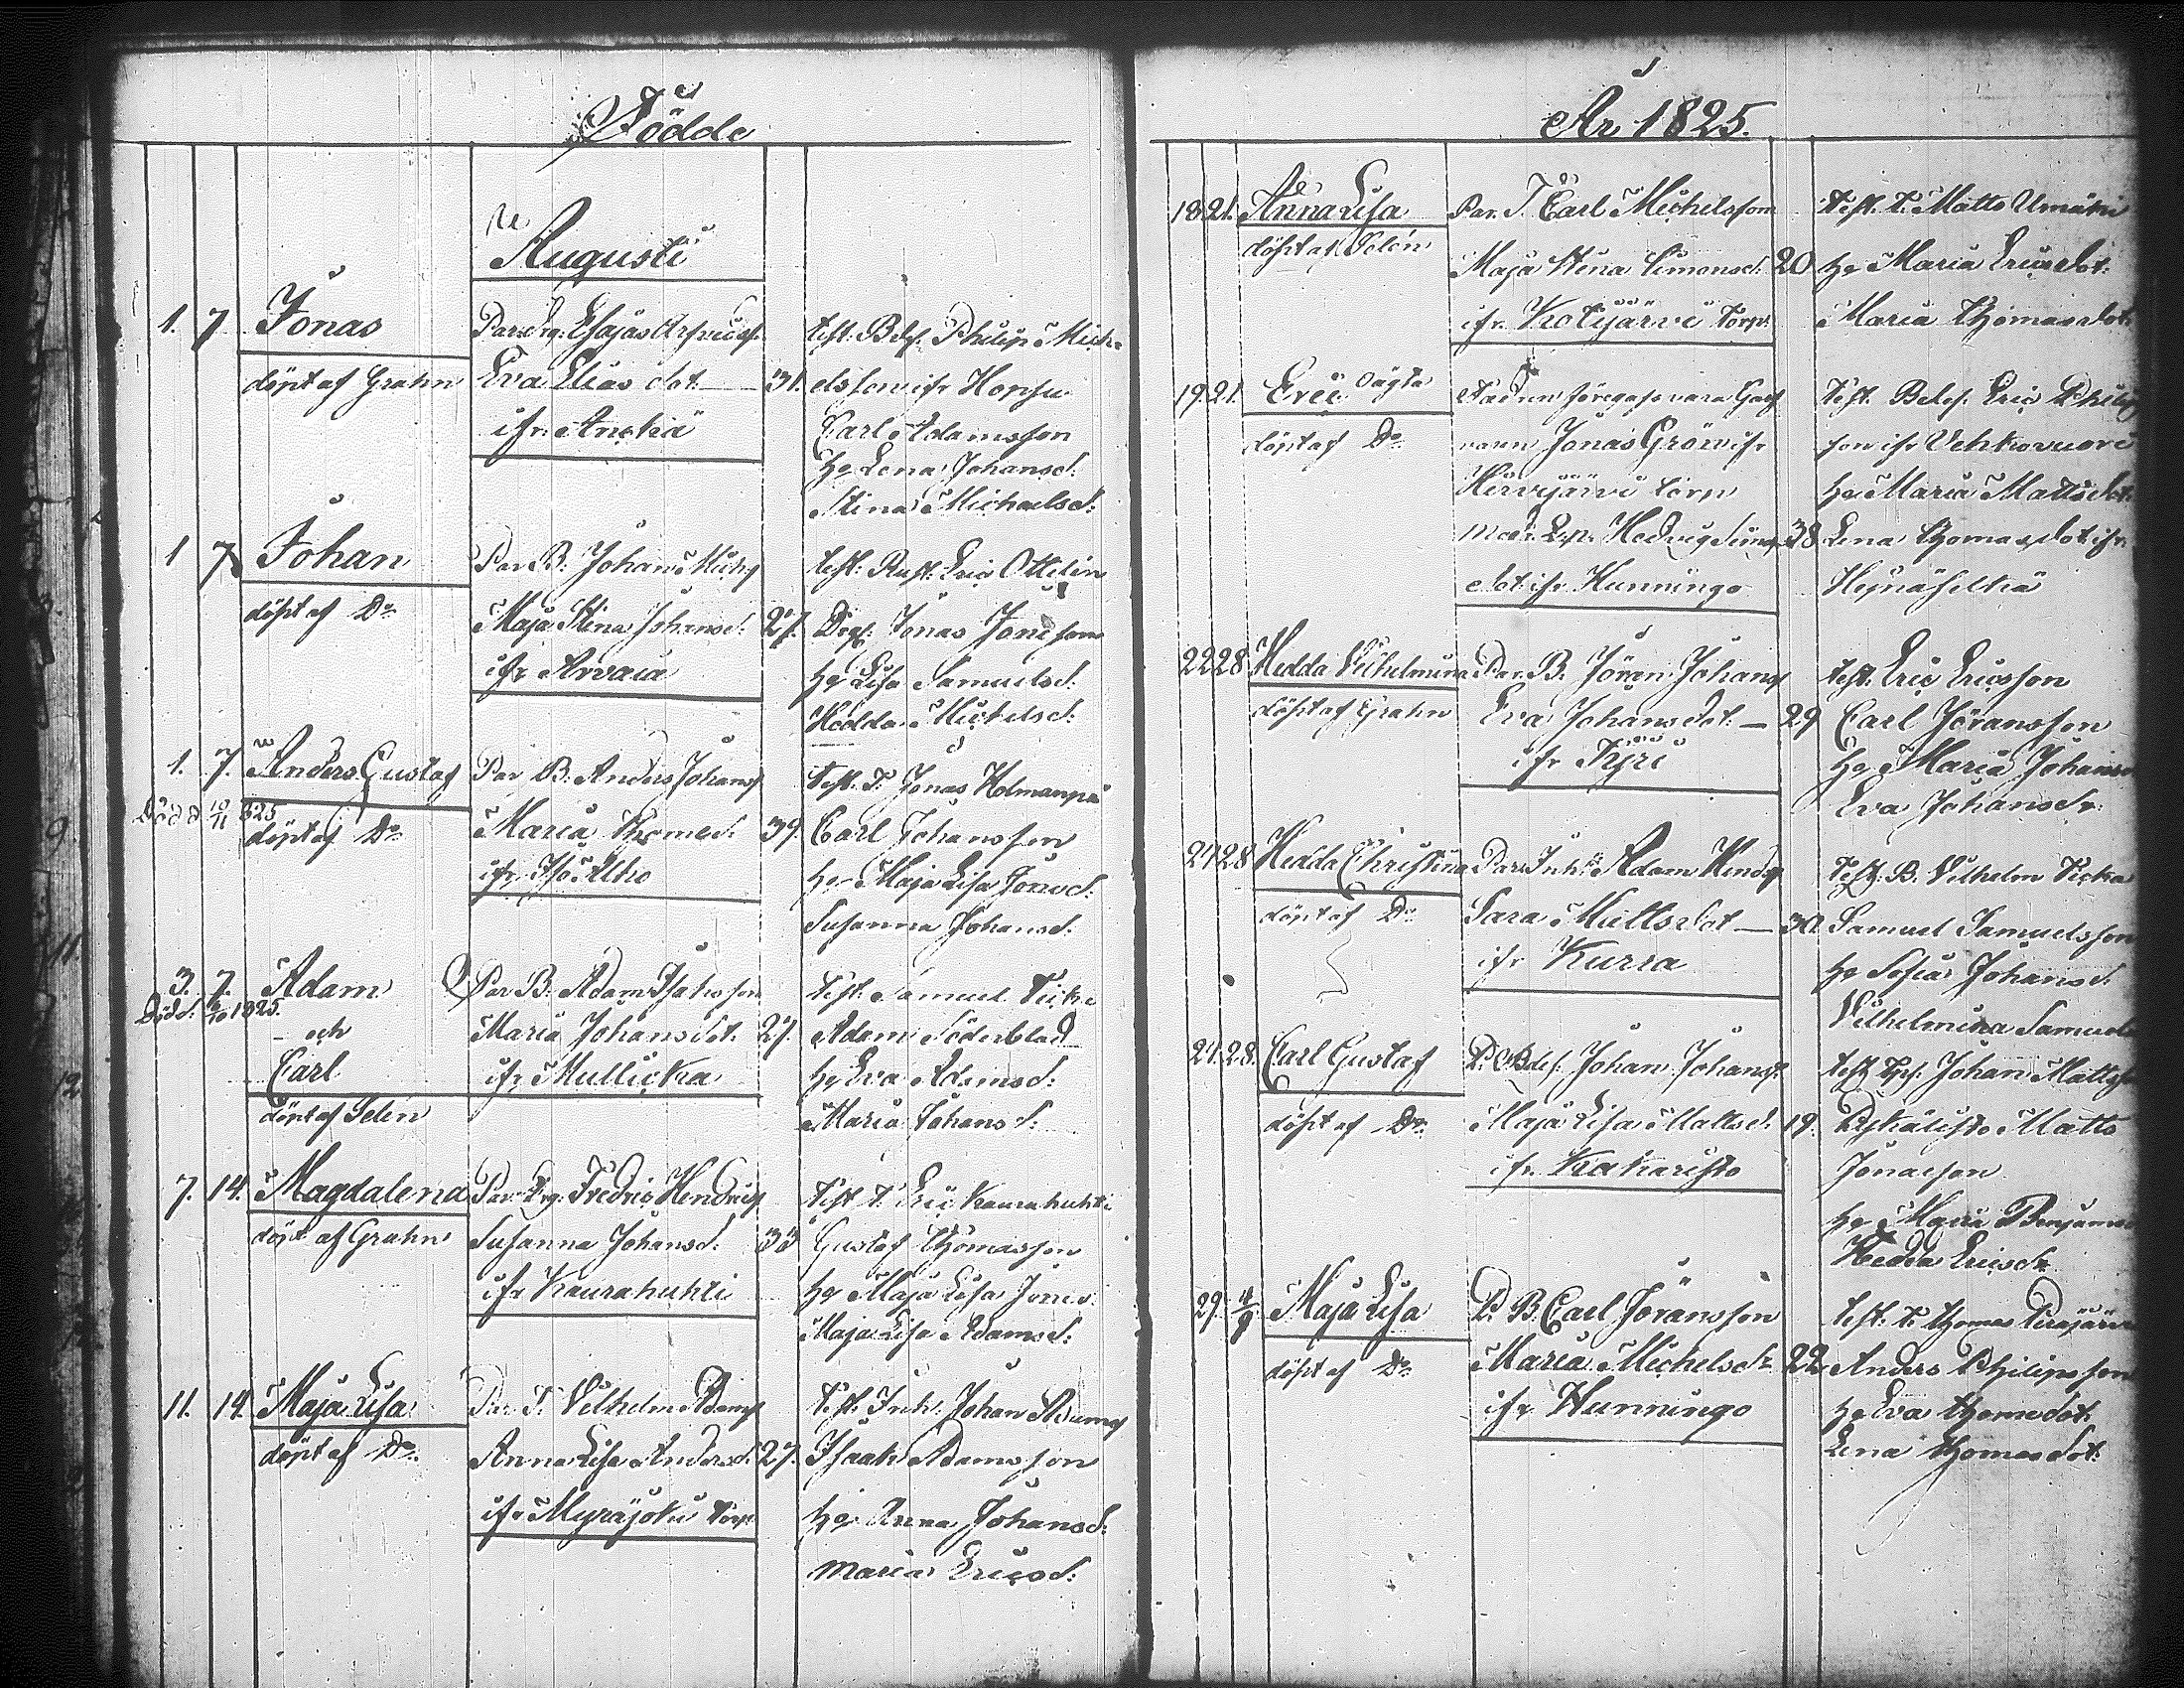 Födde
Augusti
1. 7. Jonas
döpt af Grahn
Par. Drg. Esajas
Eva Elias dot — 31.
ifr.
test. Philip Mich-
elsson ifr Honsu
Carl Adamsson
Hr Lena Johansd:
Stina Michaelsd:
1 7 Johan
döpt af Do
Par B: Johan Mich
Maja Stina Johansd: 27.
ifr Arvaia
test: Rust: Eric Ottelin
Jonas Jonesson
Hr Lisa Samuelsd:
Hedda Michelsd:
1. 7. Anders Gustaf
Död d 10/11 825
döpt af Do
Par B. Anders Johanss
Maria Thomasd: 39.
ifr Iso Alho
Test. T. Jonas
Carl Johansson
Hr Maja Lisa Jonasd:
Susanna Johansd:
3. 7. Adam
Död d. 1825.
och
Carl
döpt af Selen
Par B. Adam Isaksson
Maria Johansdot. 27.
ifr Mullicka
Test. Samuel
Adam Söderblad
Hr Eva Adamsd:
Maria Johansd:
7. 14. Magdalena
döpt af Grahn
Par. Drg. Fredric Hendricss
Susanna Johansd. 33
ifr Kaurahuhti
Test T. Eric Kaurahuhti
Gustaf Thomasson
Hr Maja Lisa Jonasd:
Maja Lisa Adamsd:
11. 14. Maja Lisa
döpt af Do.
Par. T. Vilhelm Adamss
Anna Lisa Andersd: 27.
ifr Myräjoki torp.
Test. Inh. Johan Adamss
Isaak Adamsson
Hr Anna Johansd:
Maria Ericsd:
År 1825.
18. 21. Anna Lisa
döpt af Selén
Par. T. Carl Michelsson
Maja Stina Simonsd: 20
ifr. Kotijärvi torp.
test. T. Matts
Hr Maria Ericsdot:
Maria Thomasdot.
19. 21. Eric oägta
döpt af Do
Fadren föregafs vara
Jonas Grön ifr
Hirvijärvi torp
mod: Hedvig Simons 38.
dot ifr Hunningo
Test. Eric Philip
son ifr Vehkavuori
Hr Maria Mattsdot.
Lena Thomasdot ifr
22 28 Hedda Vilhelmina
döpt af Grahn
Par. B. Jöran Johanss
Eva Johansdot. — 29
ifr Kyrö
test. Eric Ericsson
Carl Jöransson
Hr Maria Johans
Eva Johansdr.
24 28 Hedda Christina
döpt af Do
Par Inh: Adam Hendr
Sara Mattsdot — 30
ifr Kurra
Test. B. Vilhelm
Samuel Samuelsson
Hr Sofia Johansd:
Vilhelmina Samuels
24. 28. Carl Gustaf
döpt af Do
P. Johan Johanss
Maja Lisa Mattsd: 19.
ifr. Kakaristo
test Johan Mattss
Matts
Jonasson
Hr Maria Benjamins
Hedda Ericsdr
29. 4/9 Maja Lisa
döpt af Do
P. B. Carl Jöransson
Maria Michelsdr 22
ifr Hunningo
test. T. Thomas
Anders Philipsson
Hr Eva Thomasdot.
Lena Thomasdot.
9.
11.
12